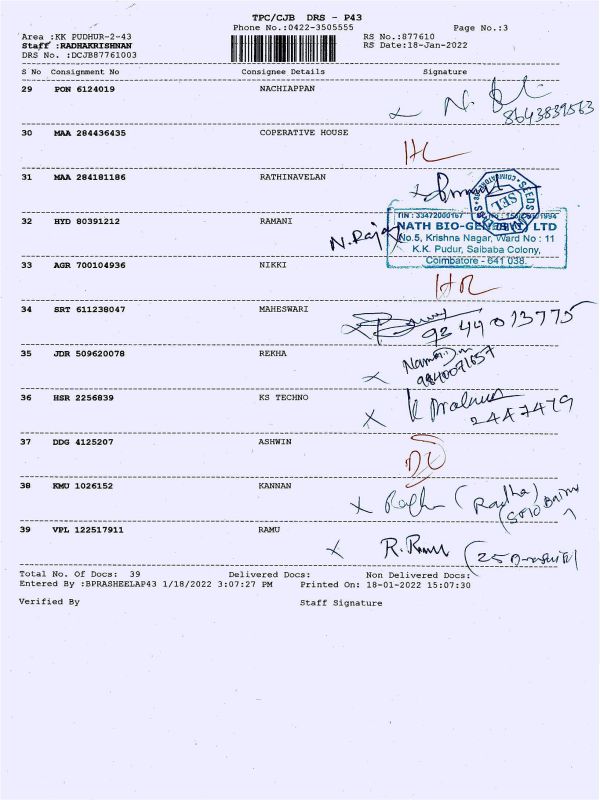 TPC/CJB DRS - P43
Phone No.:0422-3505555
Page No.:3
Area :KK PUDHUR-2-43
RS No.:877610
Staff :RADHAKRISHNAN
RS Date:18-Jan-2022
DRS No. :DCJB87761003
S No Consignment No Consignee Details Signature
29 PON 6124019 NACHIAPPAN
8643839563
30 MAA 284436435 COPERATIVE HOUSE
HL
31 MAA 284181186 RATHINAVELAN
SEL
TIN : 33472000167
32 HYD 80391212 RAMANI
N.Raja
NATH BIO-GENES (I) LTD
No.5, Krishna Nagar, Ward No : 11
K.K. Pudur, Saibaba Colony,
Coimbatore - 641 038.
33 AGR 700104936 NIKKI
HR
34 SRT 611238047 MAHESWARI
9344013775
35 JDR 509620078 REKHA
9840071657
36 HSR 2256839 KS TECHNO
2447479
37 DDG 4125207 ASHWIN
DL
38 KMU 1026152 KANNAN
(Radha)
39 VPL 122517911 RAMU
R.Ramu
Total No. Of Docs: 39 Delivered Docs: Non Delivered Docs:
Entered By :BPRASHEELAP43 1/18/2022 3:07:27 PM Printed On: 18-01-2022 15:07:30
Verified By Staff Signature